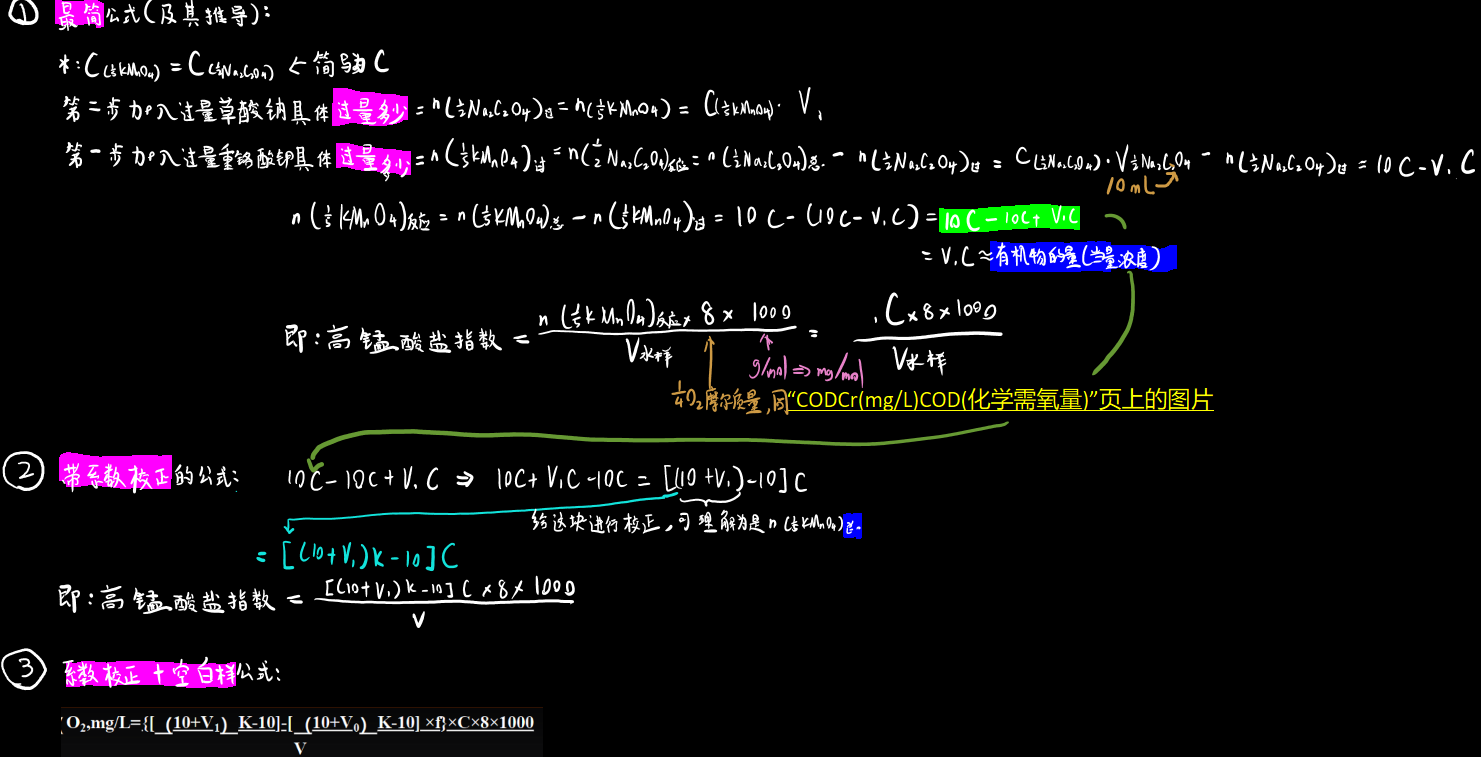 ① 最简公式(及其推导):
*: C(⅕KMnO₄) = C(½Na₂C₂O₄) ← 简写为 C
第二步加入过量草酸钠具体过量多少 = n(½Na₂C₂O₄)过 = n(⅕KMnO₄) = C(⅕KMnO₄)· V₁
第一步加入过量重铬酸钾具体过量多少 = n(⅕KMnO₄)过 = n(½Na₂C₂O₄)反应 = n(½Na₂C₂O₄)总 - n(½Na₂C₂O₄)过 = C(½Na₂C₂O₄)·V½Na₂C₂O₄ - n(½Na₂C₂O₄)过 = 10C-V₁C
10mL
n(⅕KMnO₄)反应 = n(⅕KMnO₄)总 - n(⅕KMnO₄)过 = 10C-(10C-V₁C) = 10C-10C+V₁C
= V₁C ≈ 有机物的量(当量浓度)
即:高锰酸盐指数 = n(⅕KMnO₄)反应 × 8 × 1000 / V水样 = .C×8×1000 / V水样
g/mol ⇒ mg/mol
¼O₂摩尔质量,因“CODCr(mg/L)COD(化学需氧量)”页上的图片
② 带系数校正的公式: 10C-10C+V₁C ⇒ 10C+V₁C-10C = [(10+V₁)-10]C
给这块进行校正,可理解为是n(⅕KMnO₄)总.
= [(10+V₁)K-10]C
即:高锰酸盐指数 = [(10+V₁)K-10]C×8×1000 / V
③ 系数校正+空白样公式:
(O₂,mg/L={[(10+V₁) K-10]-[(10+V₀) K-10]×f}×C×8×1000
V